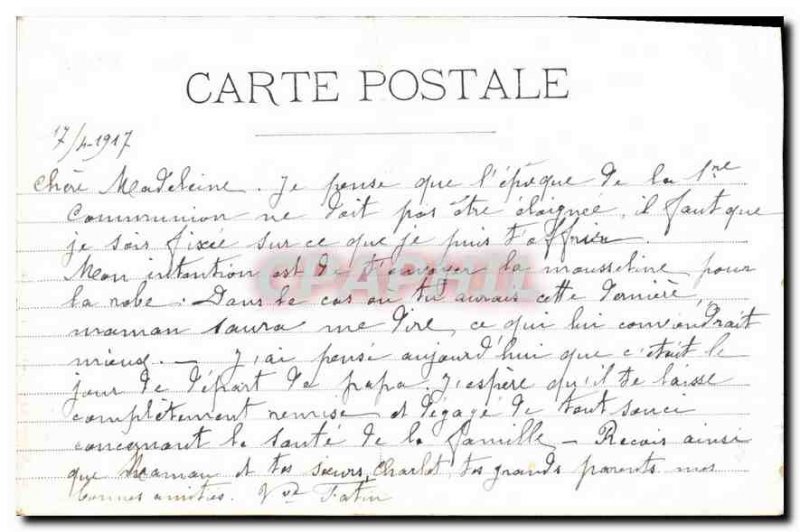 CARTE POSTALE
17/4-1917
Chère Madeleine. Je pense que l'époque de la 1re
Communion ne doit pas être éloignée, il faut que
je sois fixée sur ce que je puis t'offrir.
Mon intention est de t'envoyer la mousseline pour
la robe. Dans le cas ou tu aurais cette dernière,
maman saura me dire, ce qui lui conviendrait
mieux. — J'ai pensé aujourd'hui que c'était le
jour de départ de papa. J'espère qu'il te laisse
complètement remise et dégagé de tout souci
concernant la santé de la famille — Reçois ainsi
que Maman et tes sœurs, Charlot, tes grands parents mes
bonnes amitiés.
CPAPHIL